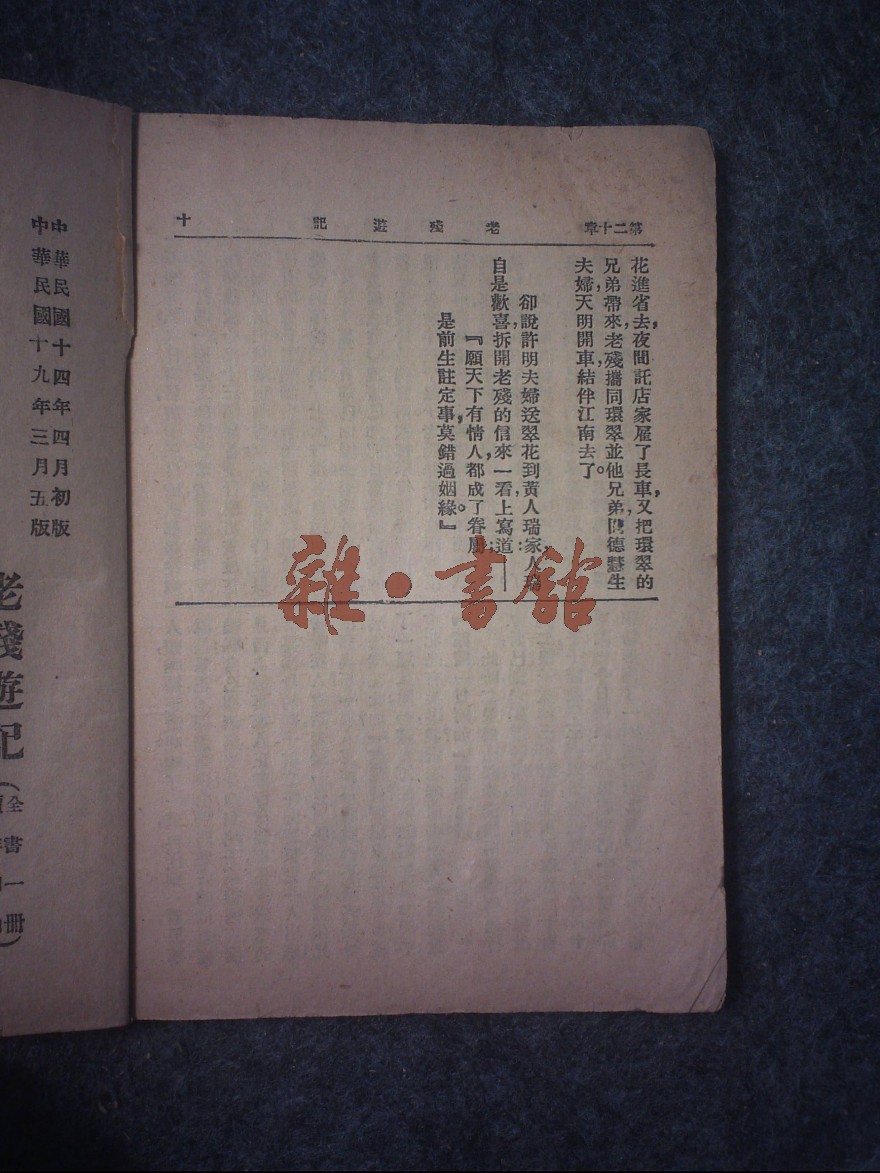 第二十章 老殘遊記 十
花進省去，夜間託店家雇了長車，又把環翠的
兄弟帶來，老殘攜同環翠並他兄弟同德慧生
夫婦天明開車，結伴江南去了。
卻說許明夫婦送翠花到黃人瑞家，人瑞
自是歡喜，拆開老殘的信來一看，上寫道：——
『願天下有情人，都成了眷屬；
是前生註定事，莫錯過姻緣。』
雜·書館
中華民國十四年四月初版
中華民國十九年三月五版
老殘遊記
全書一冊